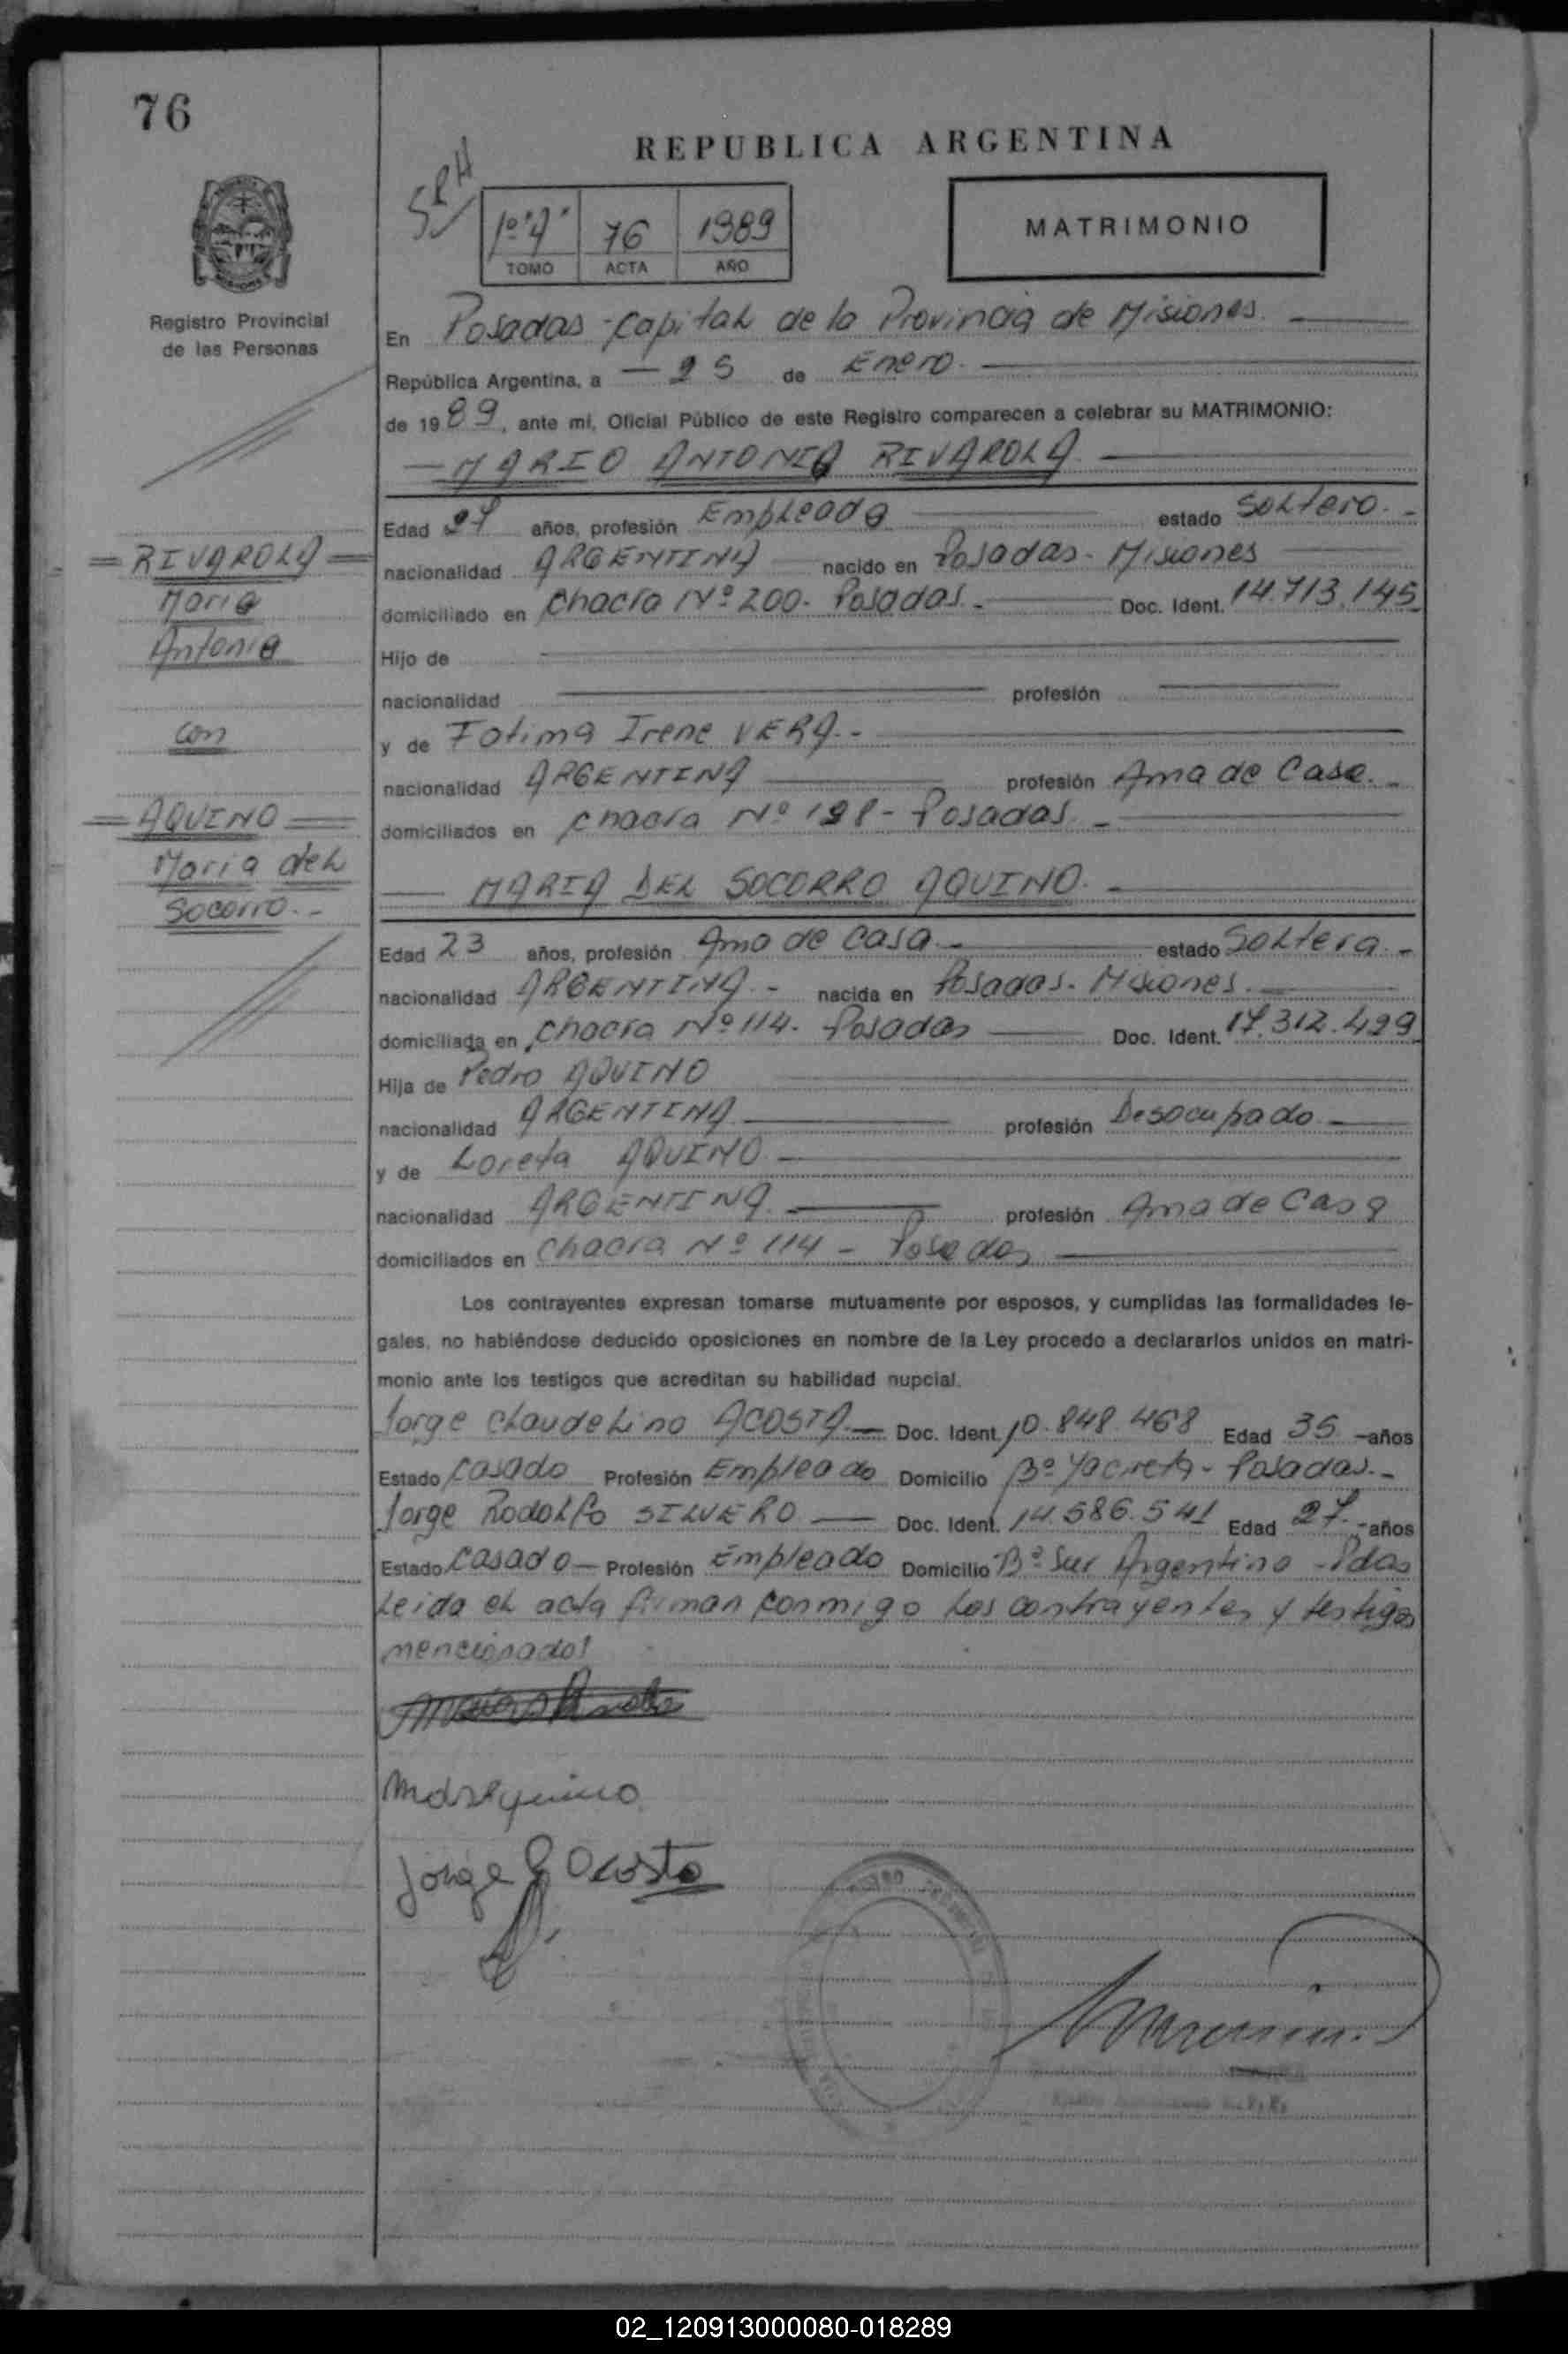 76
REPUBLICA ARGENTINA
SRH
1º "A" 76 1989
TOMO ACTA AÑO
MATRIMONIO
Registro Provincial
de las Personas
En Posadas - Capital de la Provincia de Misiones.
República Argentina, a - 25 de Enero.
de 1989, ante mi, Oficial Público de este Registro comparecen a celebrar su MATRIMONIO:
MARIO ANTONIO RIVAROLA.
Edad 27 años, profesión Empleado estado Soltero.-
nacionalidad ARGENTINA nacido en Posadas - Misiones
domiciliado en Chacra Nº 200. Posadas.- Doc. Ident. 14.713.145
Hijo de
nacionalidad profesión
y de Fatima Irene VERA.-
nacionalidad ARGENTINA profesión Ama de Casa.-
domiciliados en Chacra Nº 198 - Posadas.-
= RIVAROLA =
Mario
Antonio
con
= AQUINO =
Maria del
Socorro.-
MARIA DEL SOCORRO AQUINO.-
Edad 23 años, profesión Ama de Casa.- estado Soltera.-
nacionalidad ARGENTINA.- nacida en Posadas. Misiones.
domiciliada en Chacra Nº 114. Posadas Doc. Ident. 17.312.499
Hija de Pedro AQUINO
nacionalidad ARGENTINA profesión Desocupado.-
y de Loreta AQUINO.-
nacionalidad ARGENTINA. profesión Ama de Casa
domiciliados en Chacra Nº 114 - Posadas
Los contrayentes expresan tomarse mutuamente por esposos, y cumplidas las formalidades le-
gales, no habiéndose deducido oposiciones en nombre de la Ley procedo a declararlos unidos en matri-
monio ante los testigos que acreditan su habilidad nupcial.
Jorge Claudelino ACOSTA.- Doc. Ident. 10.848.468 Edad 35 -años
Estado Casado Profesión Empleado Domicilio Bº Yacireta - Posadas.-
Jorge Rodolfo SILVERO Doc. Ident. 14.586.541 Edad 27.-años
Estado Casado - Profesión Empleado Domicilio Bº Sur Argentino - Pdas
Leida el acta firman conmigo los contrayentes y testigos
mencionados
Jorge C Acosta
02_120913000080-018289